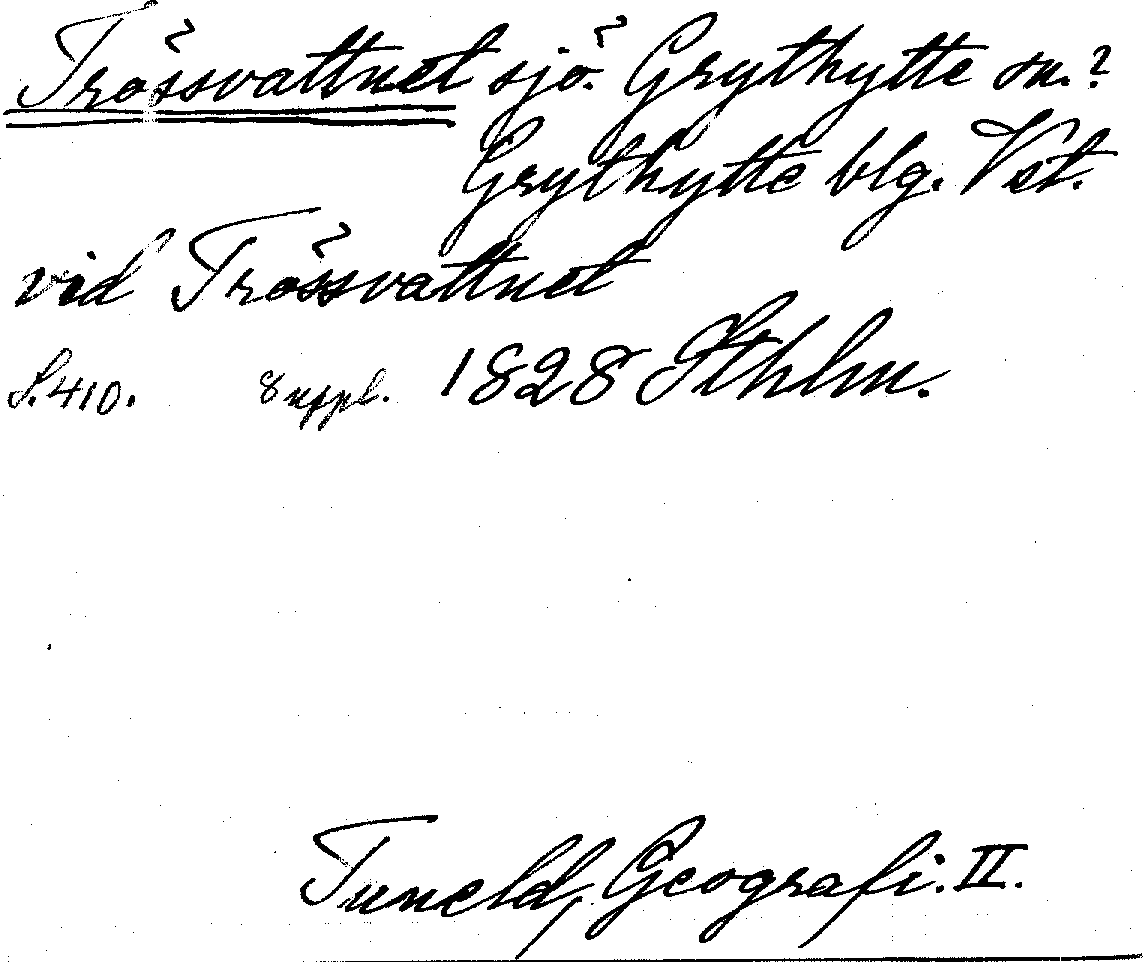 Trössvattnet sjö. Grythytte sn.?
Grythytte blg. Vst.
vid Trössvattnet
S. 410. 8 uppl. 1828 Sthlm.
Tuneld, Geografi. II.